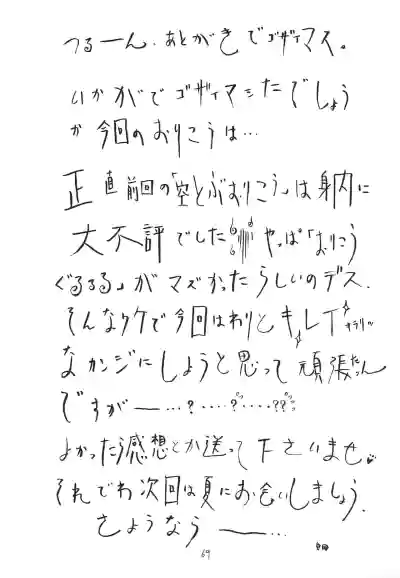 つるーん.あとがきでゴザイマス。
いかがでゴザイマシたでしょう
か今回のおりこうは…
正直前回の「空とぶおりこう」は身内に
大不評でした やっぱ「おりこう
ぐるるる」がマズかったらしいのデス.
そんなワケで今回はわりとキレイ キラリッ
なカンジにしようと思って頑張ったん
ですがー…?‥‥?‥‥??
よかったら感想とか送って下さいませ
それでわ次回は夏にお会いしましょう.
さようならー…
69